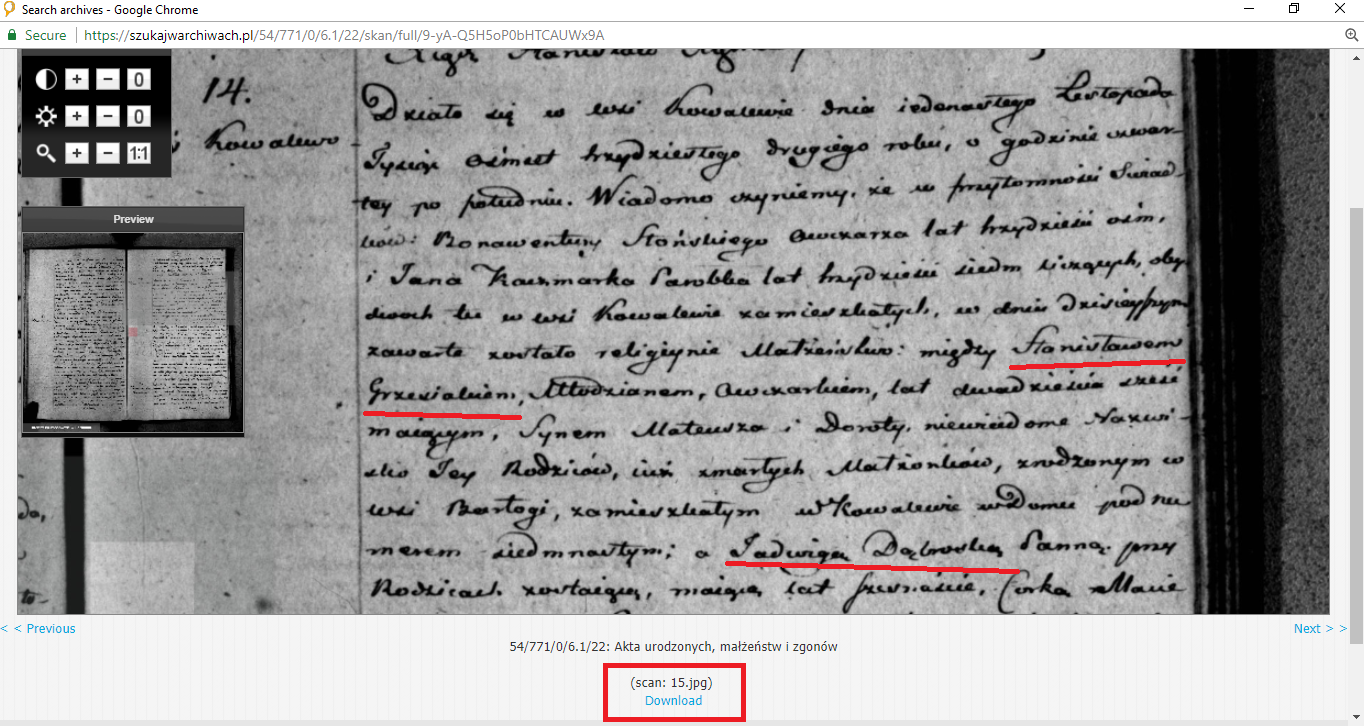 Search archives - Google Chrome
Secure https://szukajwarchiwach.pl/54/771/0/6.1/22/skan/full/9-yA-Q5H5oP0bHTCAUWx9A
+ - 0
+ - 0
+ - 1:1
Preview
14.
Kowalewo
Działo się w wsi Kowalewie dnia iedenastego Listopada
Tysiąc ośmset trzydziestego drugiego roku, o godzinie czwar-
tey po południu. Wiadomo czyniemy, że w przytomności Świad-
ków: Bonawentury Stońskiego Owczarza lat trzydzieści ośm,
i Jana Kaczmarka Parobka lat trzydzieści siedm liczących, oby-
dwoch tu w wsi Kowalewie zamieszkałych, w dniu dzisieyszym
zawarte zostało religiynie Małżeństwo między Stanisławem
Grzesiakiem, Młodzianem, Owczarkiem, lat dwadzieścia sześć
maiącym, Synem Mateusza i Doroty, niewiedome Nazwi-
sko Jey Rodziców, iuż zmarłych Małżonków, zrodzonym w
wsi Bartogi, zamieszkałym w Kowalewie w Domu pod nu
merem siedmnastym; a Jadwigą Dąbroską Panną przy
Rodzicach zostaiącą, maiącą lat szesnaście, Corką
< < Previous
Next > >
54/771/0/6.1/22: Akta urodzonych, małżeństw i zgonów
(scan: 15.jpg)
Download